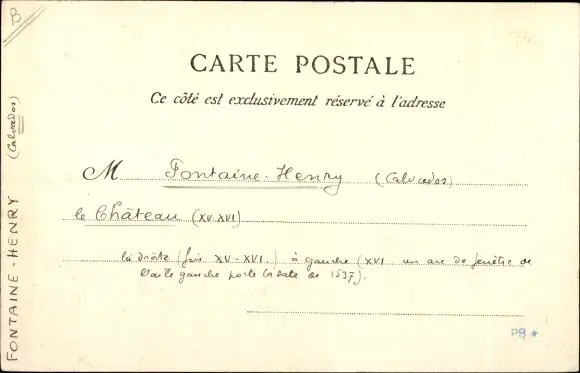 B
CARTE POSTALE
Ce côté est exclusivement réservé à l'adresse
M Fontaine-Henry (Calvados)
le Château (XV-XVI)
à droite (fin XV-XVI.) à gauche (XVI. un arc de fenêtre de
l'aile gauche porte la date de 1537).
PB
FONTAINE-HENRY (Calvados)